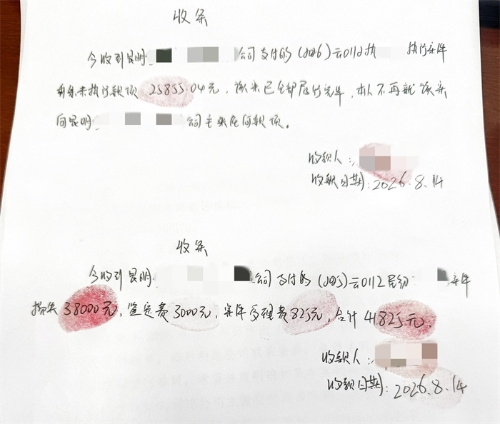 收条
今收到昆明 公司支付的(2026)云0112执 执行案件
所有未执行款项 25855.04元,该案已全部履行完毕,本人不再就该案
向昆明 公司主张任何款项。
收款人:
收款日期:2026.8.14
收条
今收到昆明 公司支付的(2025)云0112民初 案件
损失38000元,鉴定费3000元,案件受理费825元,合计41825元。
收款人:
收款日期:2026.8.14